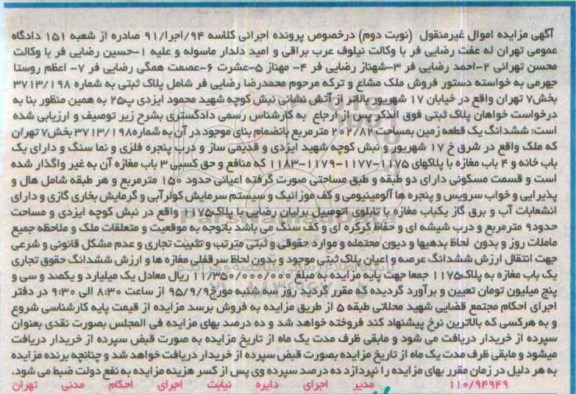 آگهی مزایده اموال غیرمنقول (نوبت دوم) درخصوص پرونده اجرائی کلاسه ۹۴/اجرا/۹۱ صادره از شعبه ۱۵۱ دادگاه
عمومی تهران له عفت رضایی فر با وکالت نیلوفر عرب براقی و امید دلدار ماسوله و علیه ۱-حسین رضایی فر با وکالت
محسن تهرانی ۲-احمد رضایی فر ۳-شهناز رضایی فر ۴- مهناز ۵-عشرت ۶-عصمت همگی رضایی فر ۷- اعظم روستا
جهرمی به خواسته دستور فروش ملک مشاع و ترکه مرحوم محمدرضا رضایی فر شامل پلاک ثبتی به شماره ۳۷۱۳/۱۹۸
بخش۷ تهران واقع در خیابان ۱۷ شهریور بالاتر از آتش نشانی نبش کوچه شهید محمود ایزدی پ۲۵ به همین منظور بنا به
درخواست خواهان پلاک ثبتی فوق الذکر پس از ارجاع به کارشناس رسمی دادگستری بشرح زیر توصیف و ارزیابی شده
است: ششدانگ یک قطعه زمین بمساحت ۲۰۲/۸۲ مترمربع بانضمام بنای موجود در آن به شماره۳۷۱۳/۱۹۸ بخش۷ تهران
که ملک واقع در شرق خ ۱۷ شهریور و نبش کوچه شهید ایزدی و قدیمی ساز و درب پنجره فلزی و نما سنگ و دارای یک
باب خانه و ۴ باب مغازه با پلاکهای ۱۱۷۵-۱۱۷۷-۱۱۷۹-۱۱۸۳ که منافع و حق کسبی ۳ باب مغازه آن به غیر واگذار شده
است و قسمت مسکونی دارای دو طبقه و طبق مساحتی صورت گرفته اعیانی حدود ۱۵۰ مترمربع و هر طبقه شامل هال و
پذیرایی و خواب سرویس و پنجره ها آلومینیومی و کف موزائیک و سیستم سرمایش کولرآبی و گرمایش بخاری گازی و دارای
انشعابات آب و برق گاز یکباب مغازه با تابلوی اتومبیل برلیان رضایی با پلاک۱۱۷۵ واقع در نبش کوچه ایزدی و مساحت
حدود۹ مترمربع و درب شیشه ای و حفاظ کرکره ای و کف سنگ می باشد باتوجه به موقعیت و متعلقات ملک و ملاحظه جمیع
عاملات روز و بدون لحاظ بدهیها و دیون محتمله و موارد حقوقی و ثبتی مترتب و تثبیت تجاری و عدم مشکل قانونی و شرعی
جهت انتقال ارزش ششدانگ عرصه و اعیان پلاک ثبتی موجود و بدون لحاظ سرقفلی مغازه ها و ارزش ششدانگ حقوق تجاری
یک باب مغازه به پلاک۱۱۷۵ جمعا جهت پایه مزایده به مبلغ ۱۱/۳۵۰/۰۰۰/۰۰۰ ریال معادل یک میلیارد و یکصد و سی و
پنج میلیون تومان تعیین و برآورد گردیده که مقرر گردید روز سه شنبه مورخ۹۵/۹/۹ از ساعت ۸:۳۰ الی ۹:۳۰ در دفتر
اجرای احکام مجتمع قضایی شهید محلاتی طبقه ۵ از طریق مزایده به فروش برسد مزایده از قیمت پایه کارشناسی شروع
و به هرکسی که بالاترین نرخ پیشنهاد کند فروخته خواهد شد و ده درصد بهای مزایده فی المجلس بصورت نقدی بعنوان
سپرده از خریدار دریافت می شود و مابقی ظرف مدت یک ماه از تاریخ مزایده به صورت قبض سپرده از خریدار دریافت
میشود و مابقی ظرف مدت یک ماه از تاریخ مزایده بصورت قبض سپرده از خریدار دریافت خواهد شد و چنانچه برنده مزایده
به هر دلیل در زمان مقرر بهای مزایده را نپردازد ده درصد سپرده وی پس از کسر هزینه مزایده به نفع دولت ضبط می شود.
۱۱۰/۹۴۹۴۹ مدیر اجرای دایره نیابت اجرای احکام مدنی تهران